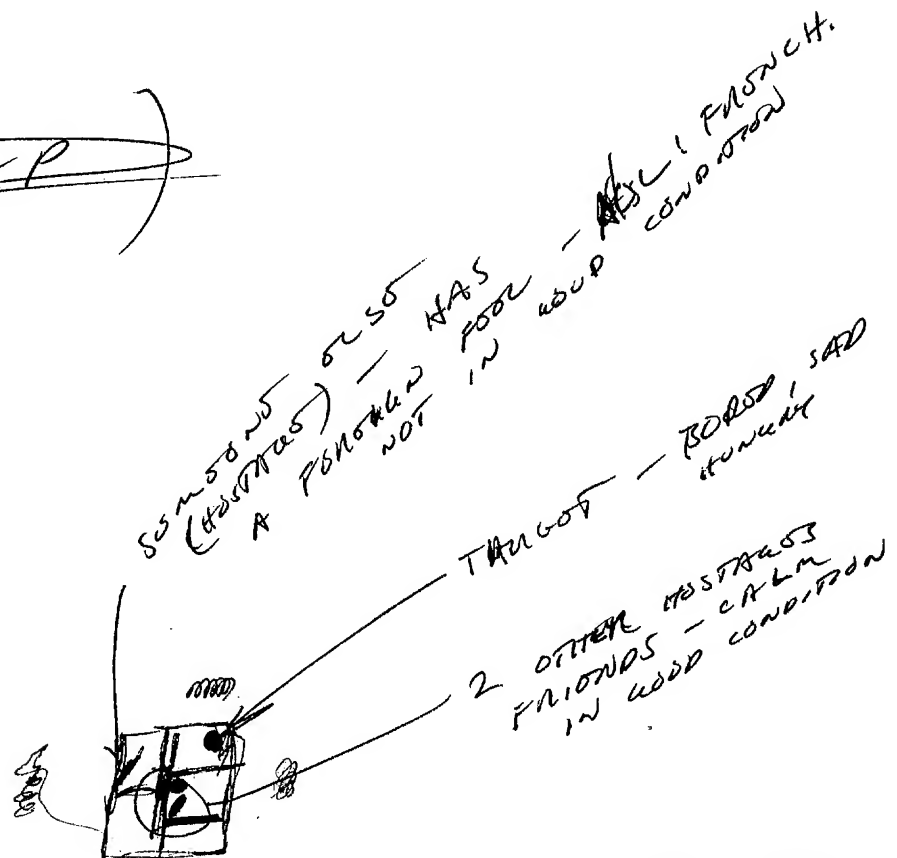 P)
SOMEONE ELSE
(HOSTAGE) — HAS
A FOREIGN FEEL — FRENCH.
NOT IN GOOD CONDITION
TARGET — BORED, SAD
HUNGRY
2 OTHER HOSTAGES
FRIENDS — CALM
IN GOOD CONDITION